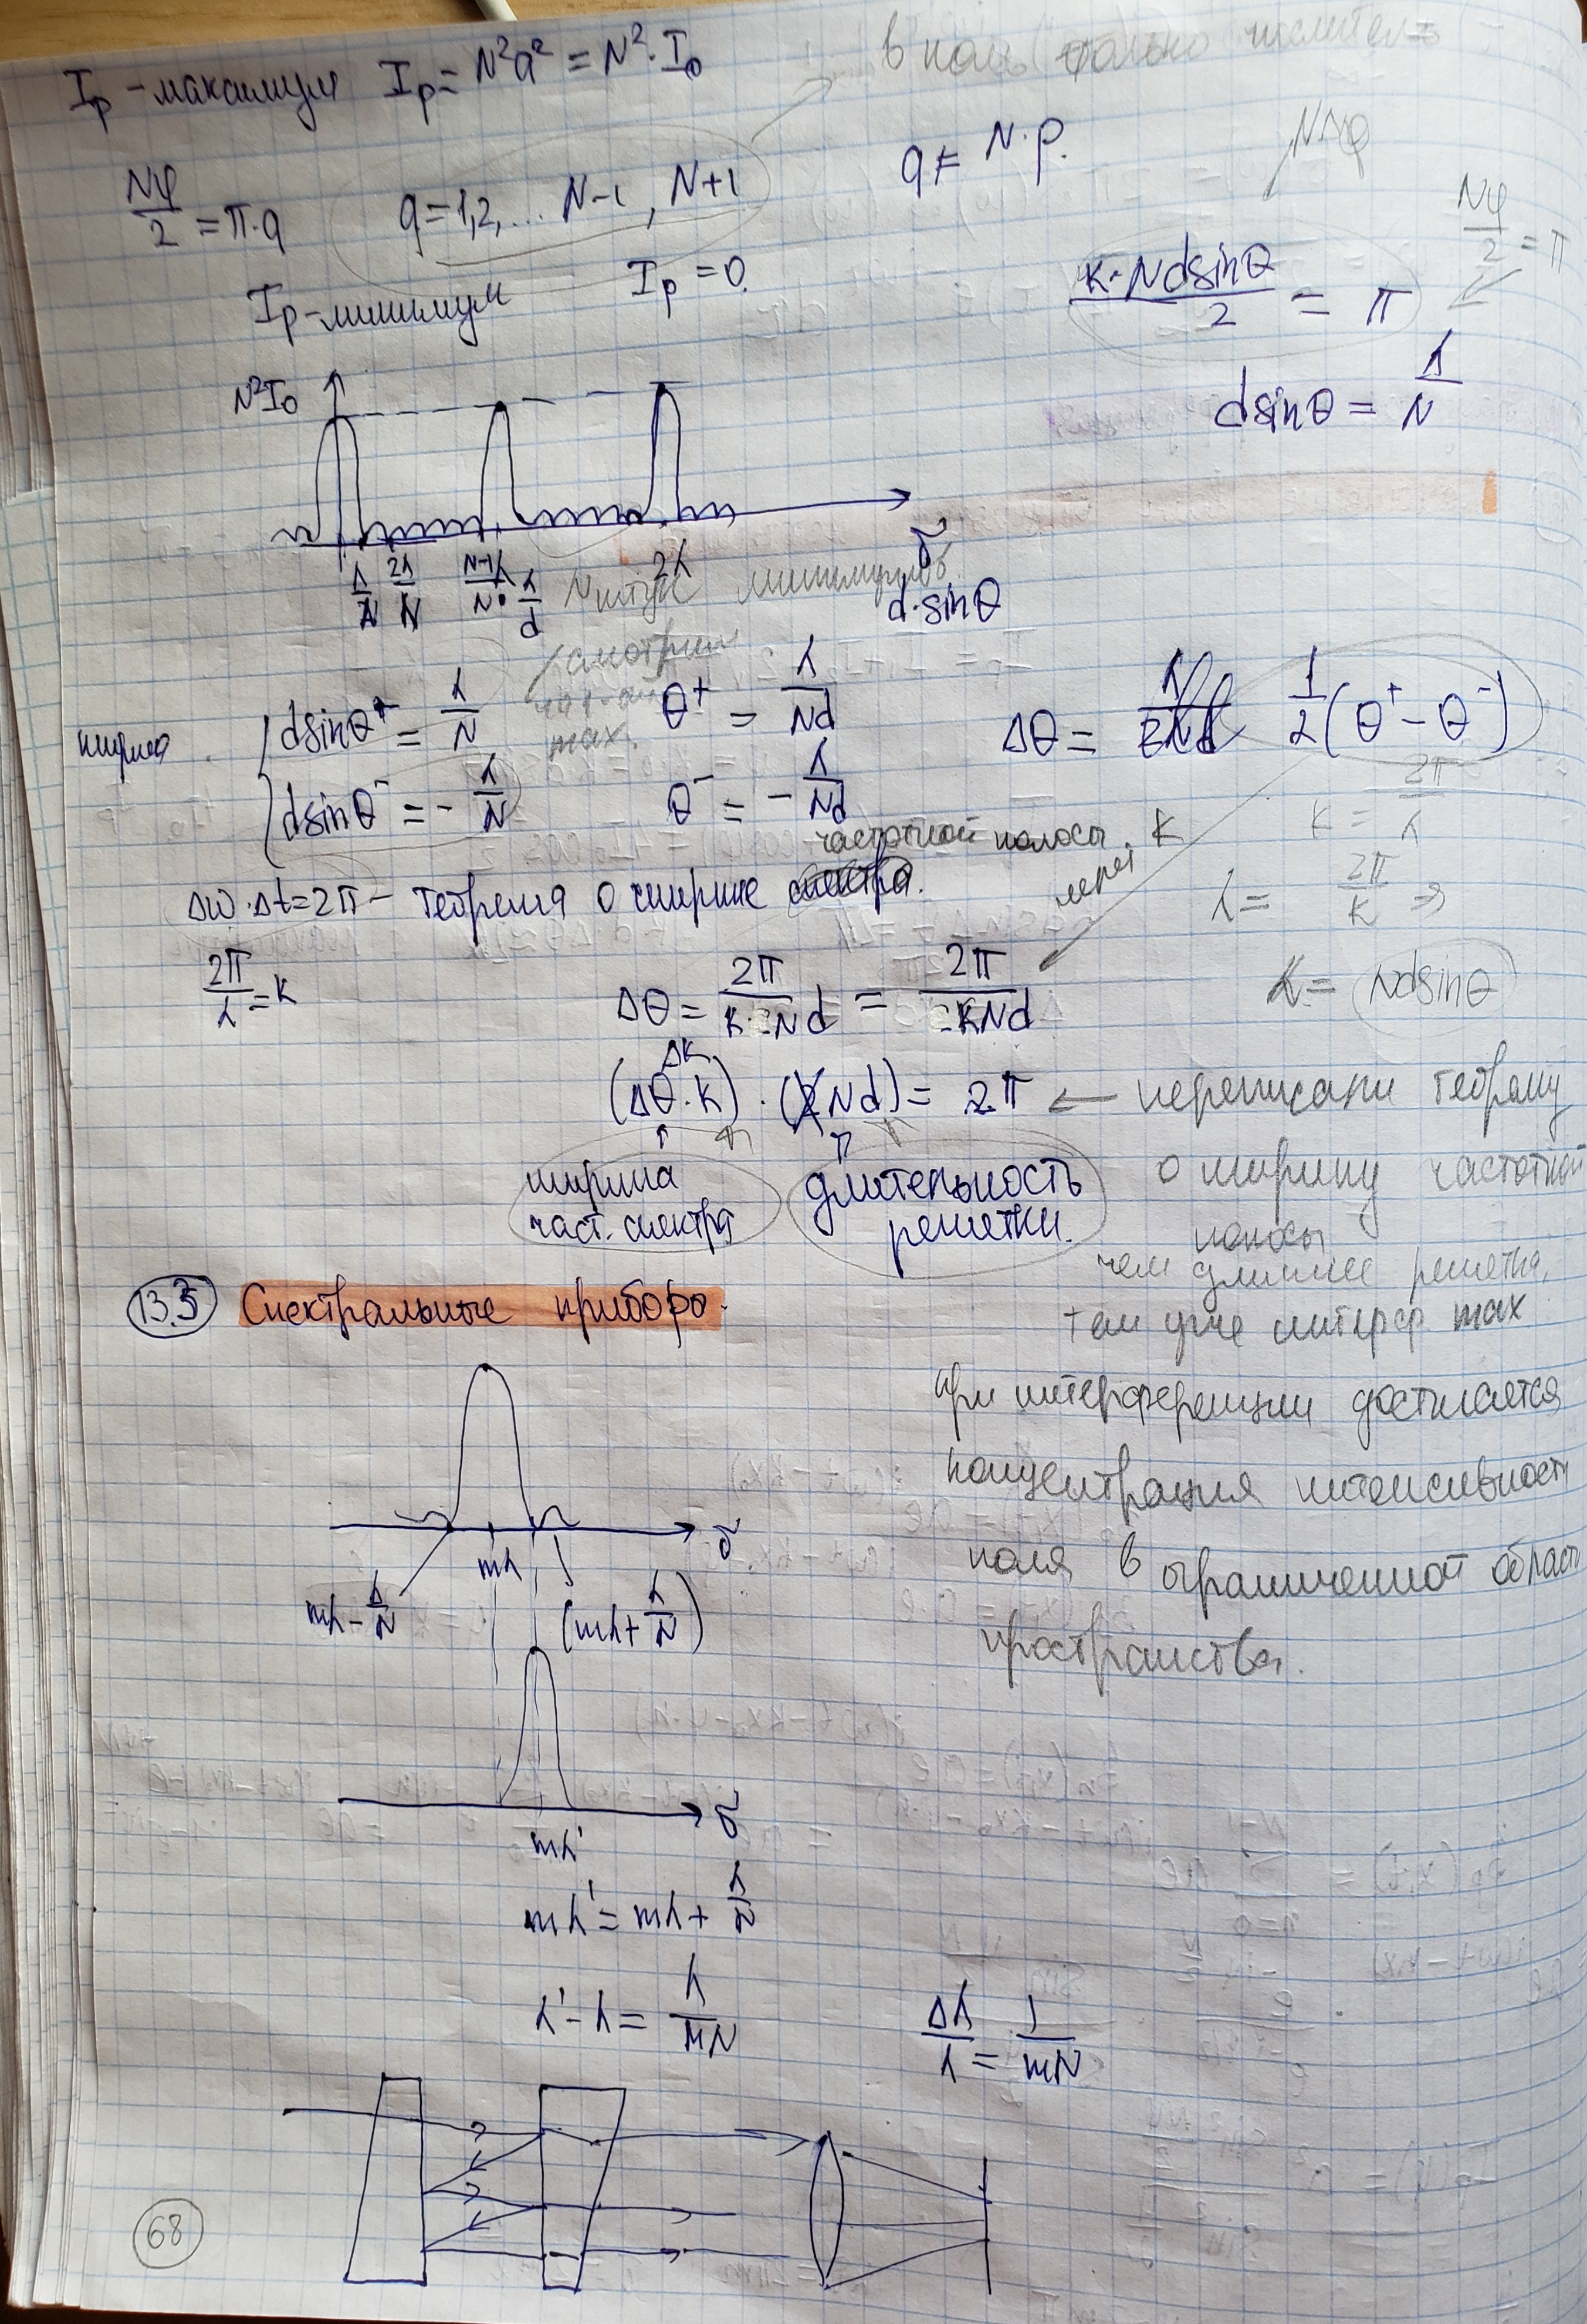 I_p - максимум I_p = N²a² = N²·I₀
в ноль только числитель
Nφ/2 = π·q q = 1,2,... N-1, N+1 q ≠ N·p.
I_p - минимум I_p = 0
Nφ/2 = π
k·Nd sinθ/2 = π
d sinθ = λ/N
N²I₀
λ/N 2λ/N N-1/N·λ λ/d 2λ δ
N штук минимумов
d·sinθ
смотрим
max.
ширина
d sinθ⁺ = λ/N θ⁺ = λ/Nd Δθ = 1/2(θ⁺ - θ⁻)
d sinθ⁻ = -λ/N θ⁻ = -λ/Nd
k = 2π/λ
частотной полосы
через k
Δω·Δt = 2π - теорема о ширине
λ = 2π/k ⇒
2π/λ = k
Δθ = 2π/k·Nd = 2π/kNd
λ = Nd sinθ
Δk
(Δθ·k)·(Nd) = 2π ← переписали теорему
о ширину частотной
полосы
ширина
част. спектра
длительность
решетки.
чем длиннее решетка,
тем уже интерф max.
13.5 Спектральные приборы.
при интерференции достигается
концентрация интенсивности
поля в ограниченной области
пространства.
mλ δ
mλ - λ/N (mλ + λ/N)
δ
mλ'
mλ' = mλ + λ/N
λ' - λ = λ/mN Δλ/λ = 1/mN
68